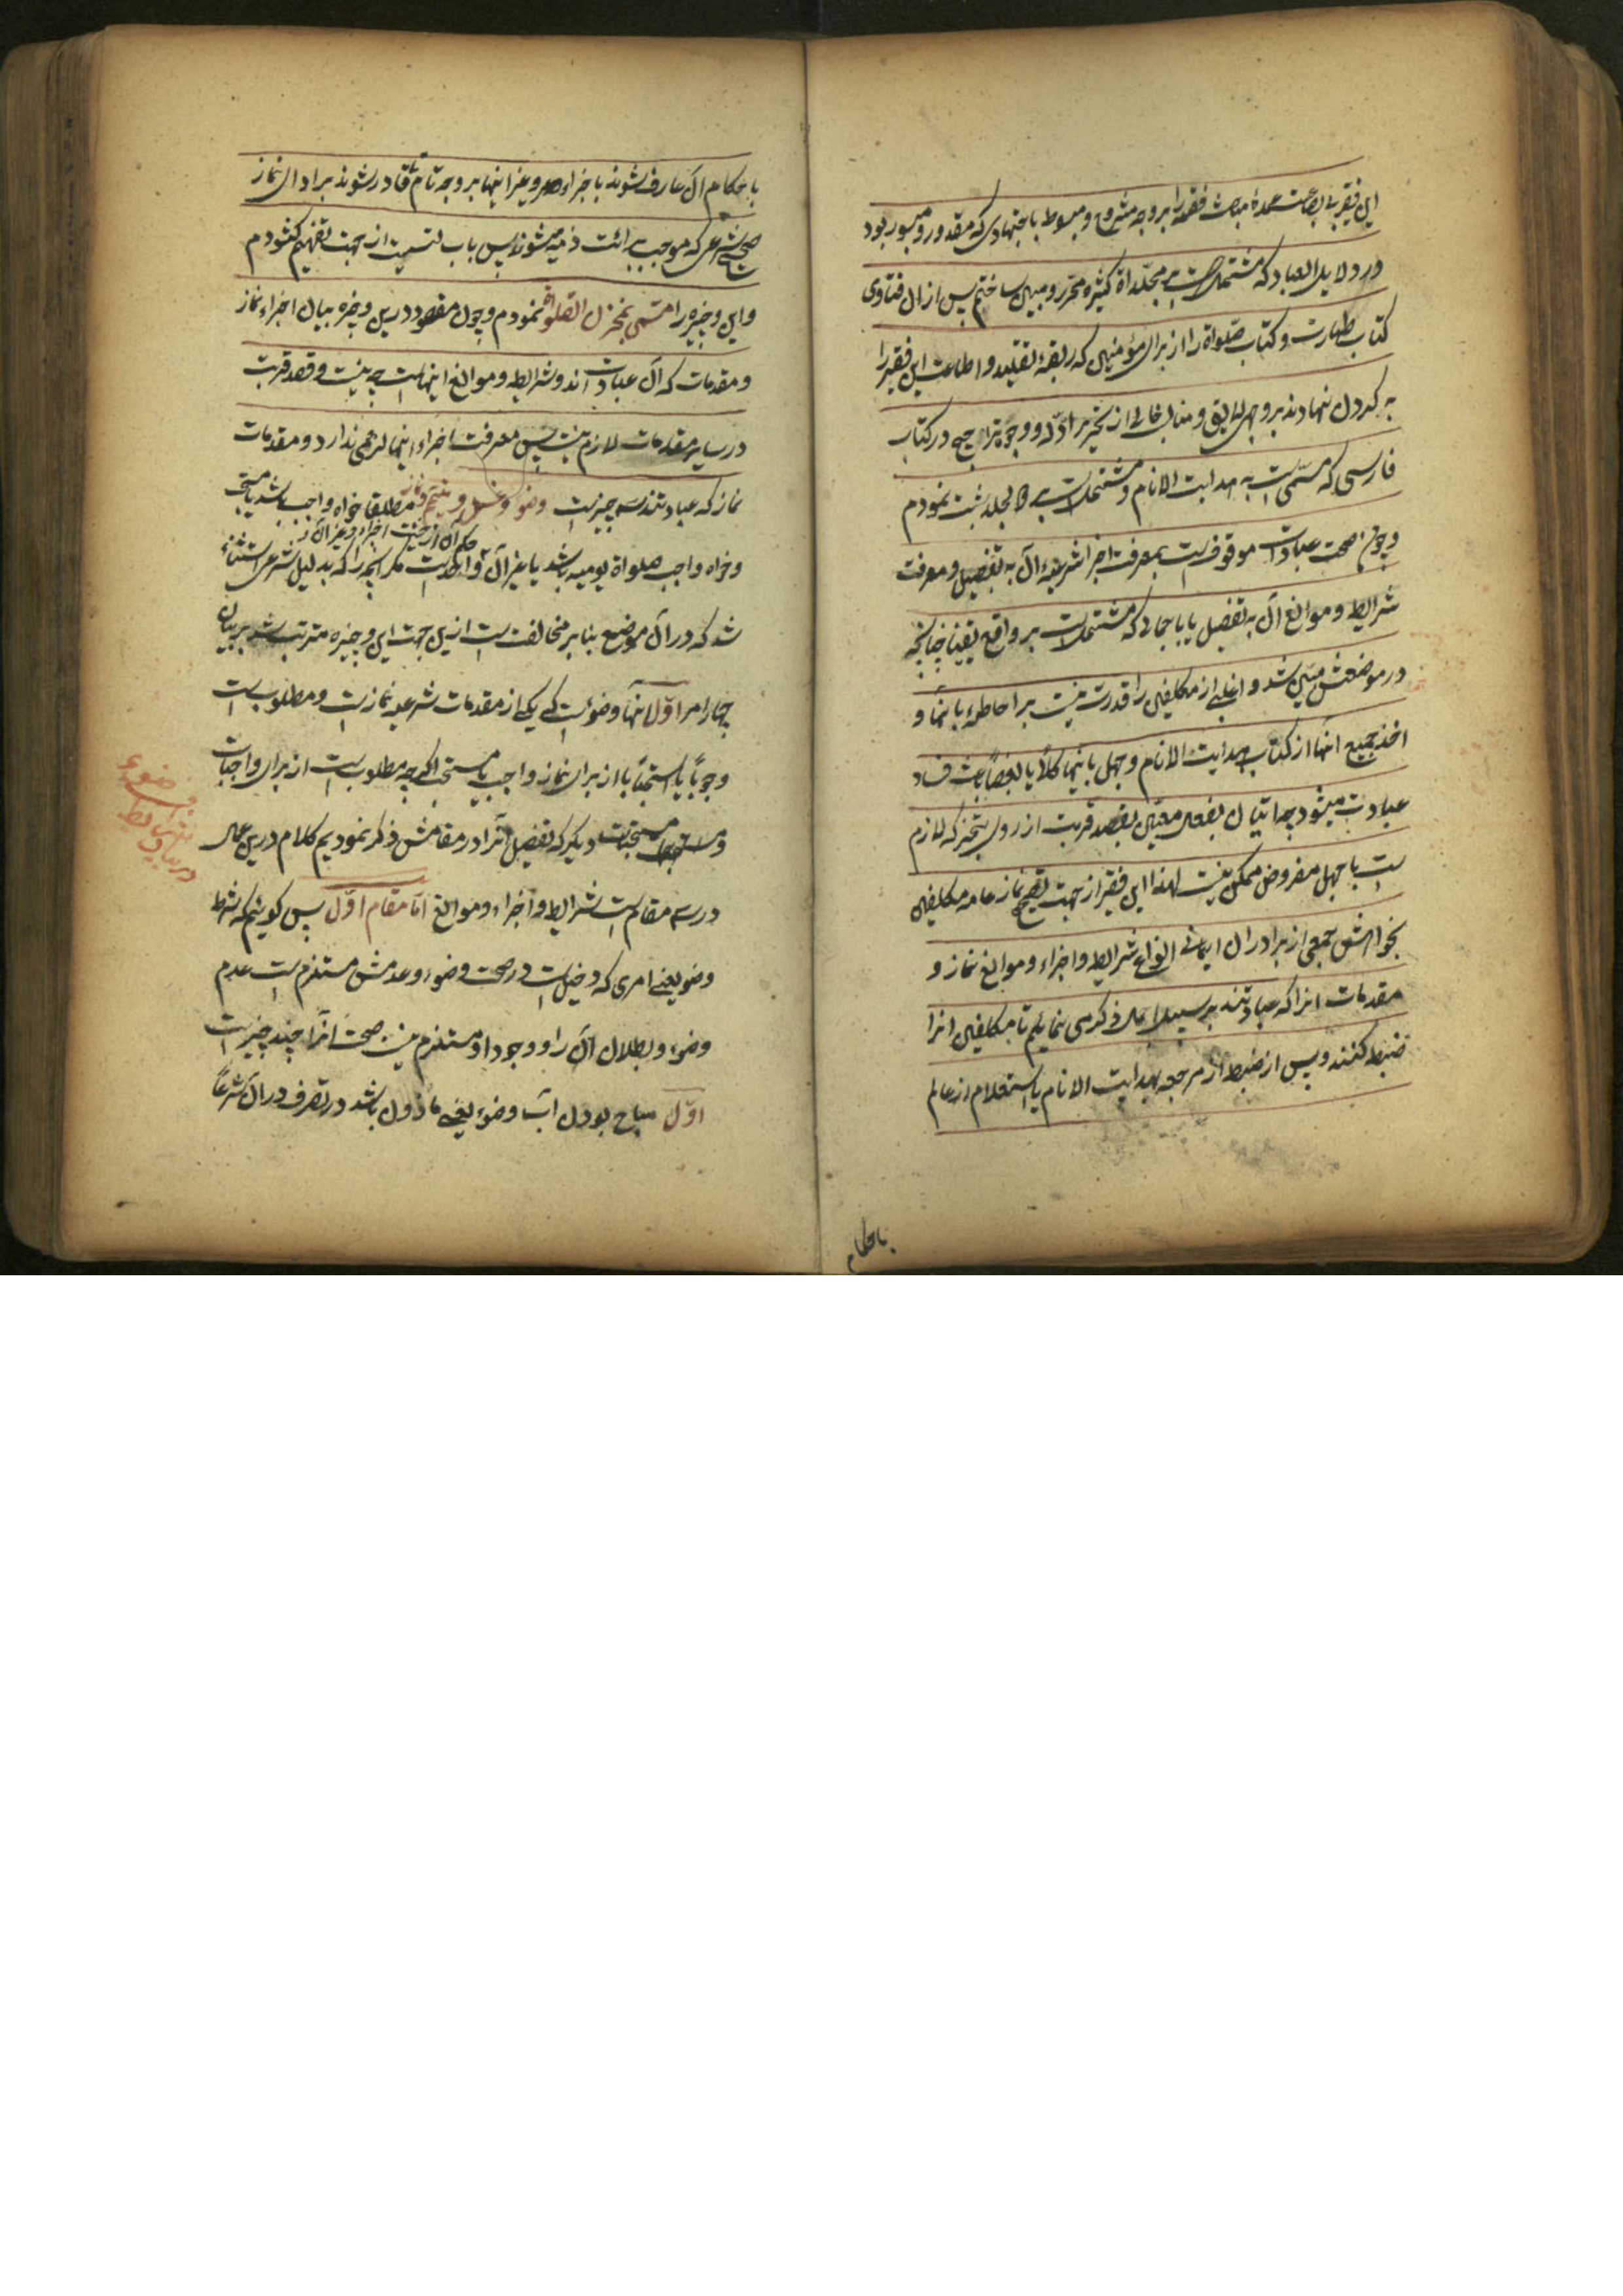 این فقیر بی بضاعت عمدهٔ مباحث فقهیه را بر وجه مشروح و مبسوط باجتهادی که مقدور و میسور بود
در دلایل العباد که مشتملست بر مجلداة کثیره محرر و مبین ساختم پس از آن فتاوی
کتاب طهارت و کتاب صلواة را از برای مؤمنین که ربقهٔ تقلید و اطاعت این فقیر را
به کردن نهادند بر وجهی لایق و مناسب خالی از تحریر ادله و وجوه تراجیح در کتاب
فارسی که مسمی است به هدایت الانام و مشتملست بر مجلد ثبت نمودم
و چون صحت عبادات موقوفست بمعرفت اجزا شرعیهٔ آن به تفصیل و معرفت
شرایط و موانع آن به تفصیل یا باجمالی که مشتملست بر واقع یقینا چنانچه
در موضعش مبین شد و اغلبی از مکلفین را قدرت نیست بر احاطهٔ بانها و
اخذ جمیع آنها از کتاب هدایت الانام و جهل بانها کلا یا بعضا باعث فساد
عبادت میشود چه اتیان بفعل معین بقصد قربت از روی تنجز که لازم
ست با جهل مفروض ممکن نیست لهذا این فقیر از جهت تصحیح نماز عامه مکلفین
بخواهش جمعی از برادران ایمانی انواع شرایط و اجزاء و موانع نماز و
مقدمات آنرا که عبادتند بر سبیل اجمال ذکر می نمایم تا مکلفین آنرا
ضبط کنند و پس از ضبط از مرجعه بهدایت الانام یا استعلام از عالم
باحکام
باحکام آن عارف شوند باجزاء و غیر اینها بر وجه تام تا قادر شوند بر ادای نماز
صحیح شرعی که موجب برائت ذمه میشود پس باب لتسمیت از جهت تفهیم کشودم
و این وجیزه را مسمی بمخزن الصلوة نمودم و چون مقصود درین وجیزه بیان اجزاء نماز
و مقدمات که آن عبادات اند و شرایط و موانع اینهاست چه نیت و قصد قربت
در سایر مقدمات لازم نیست پس معرفت اجزاء اینها لزومی ندارد و مقدمات
نماز که عبادتند سه چیزست وضو و غسل و تیمم و نماز مطلقا خواه واجب باشد یا مستحب
حکم آن از حیث اجزاء و غیر آن
و خواه واجب صلواة یومیه باشد یا غیر آن واحدست مکر آنچه را که بدلیل شرعی استثناء
شد که در آن موضع بنابر مخالفت ست ازین جهت این وجیزه مترتب شد بر بیان
چهار امر اول آنها وضوست که یکی از مقدمات شرعیه نمازست و مطلوب است
وجوبا یا استحبابا از برای نماز واجب یا مستحب اکرچه مطلوب ست از برای واجبات
و مستحبات دیکر که تفصیل آنرا در مقامش ذکر نمودیم کلام درین محل
در سه مقامست شرایط و اجزاء و موانع اما مقام اول پس کوئیم که شرط
وضو یعنی امری که دخیلست در صحت وضوء و عدمش مستلزم ست عدم
وضوء و بطلان آن را و وجود او مستلزم نیست صحت آنرا چند چیزست
اول مباح بودن آب وضوء یعنی ماذون باشد در تصرف در آن شرعا
در بیان شرایط وضوء